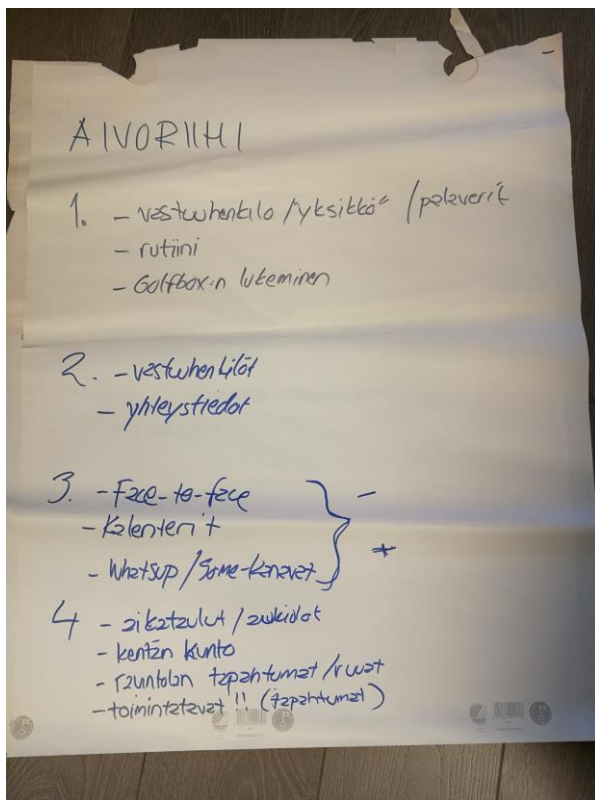 AIVORIIHI
1. - vastuuhenkilo / yksikkö / palaverit
- rutiini
- Golfbox:n lukeminen
2. - vastuuhenkilöt
- yhteystiedot
3. - Face-to-face
- Kalenterit
- Whatsup / Some-kanavat
} - +
4 - aikataulut / aukiolot
- kentän kunto
- ravintolan tapahtumat / ruuat
- toimintatavat !! (tapahtumat)